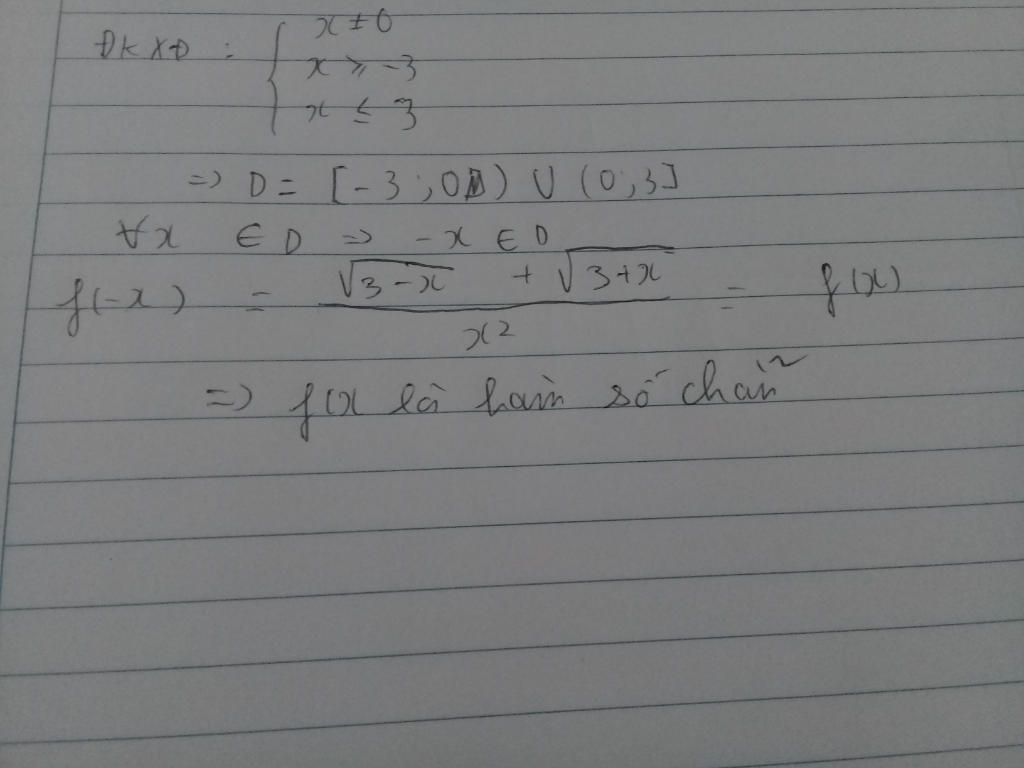 ĐKXĐ : { x ≠ 0
x ≥ -3
x ≤ 3
=> D = [-3 ; 0) ∪ (0 ; 3]
∀x ∈ D => -x ∈ D
f(-x) = (√(3-x) + √(3+x)) / x² = f(x)
=> f(x là hàm số chẵn